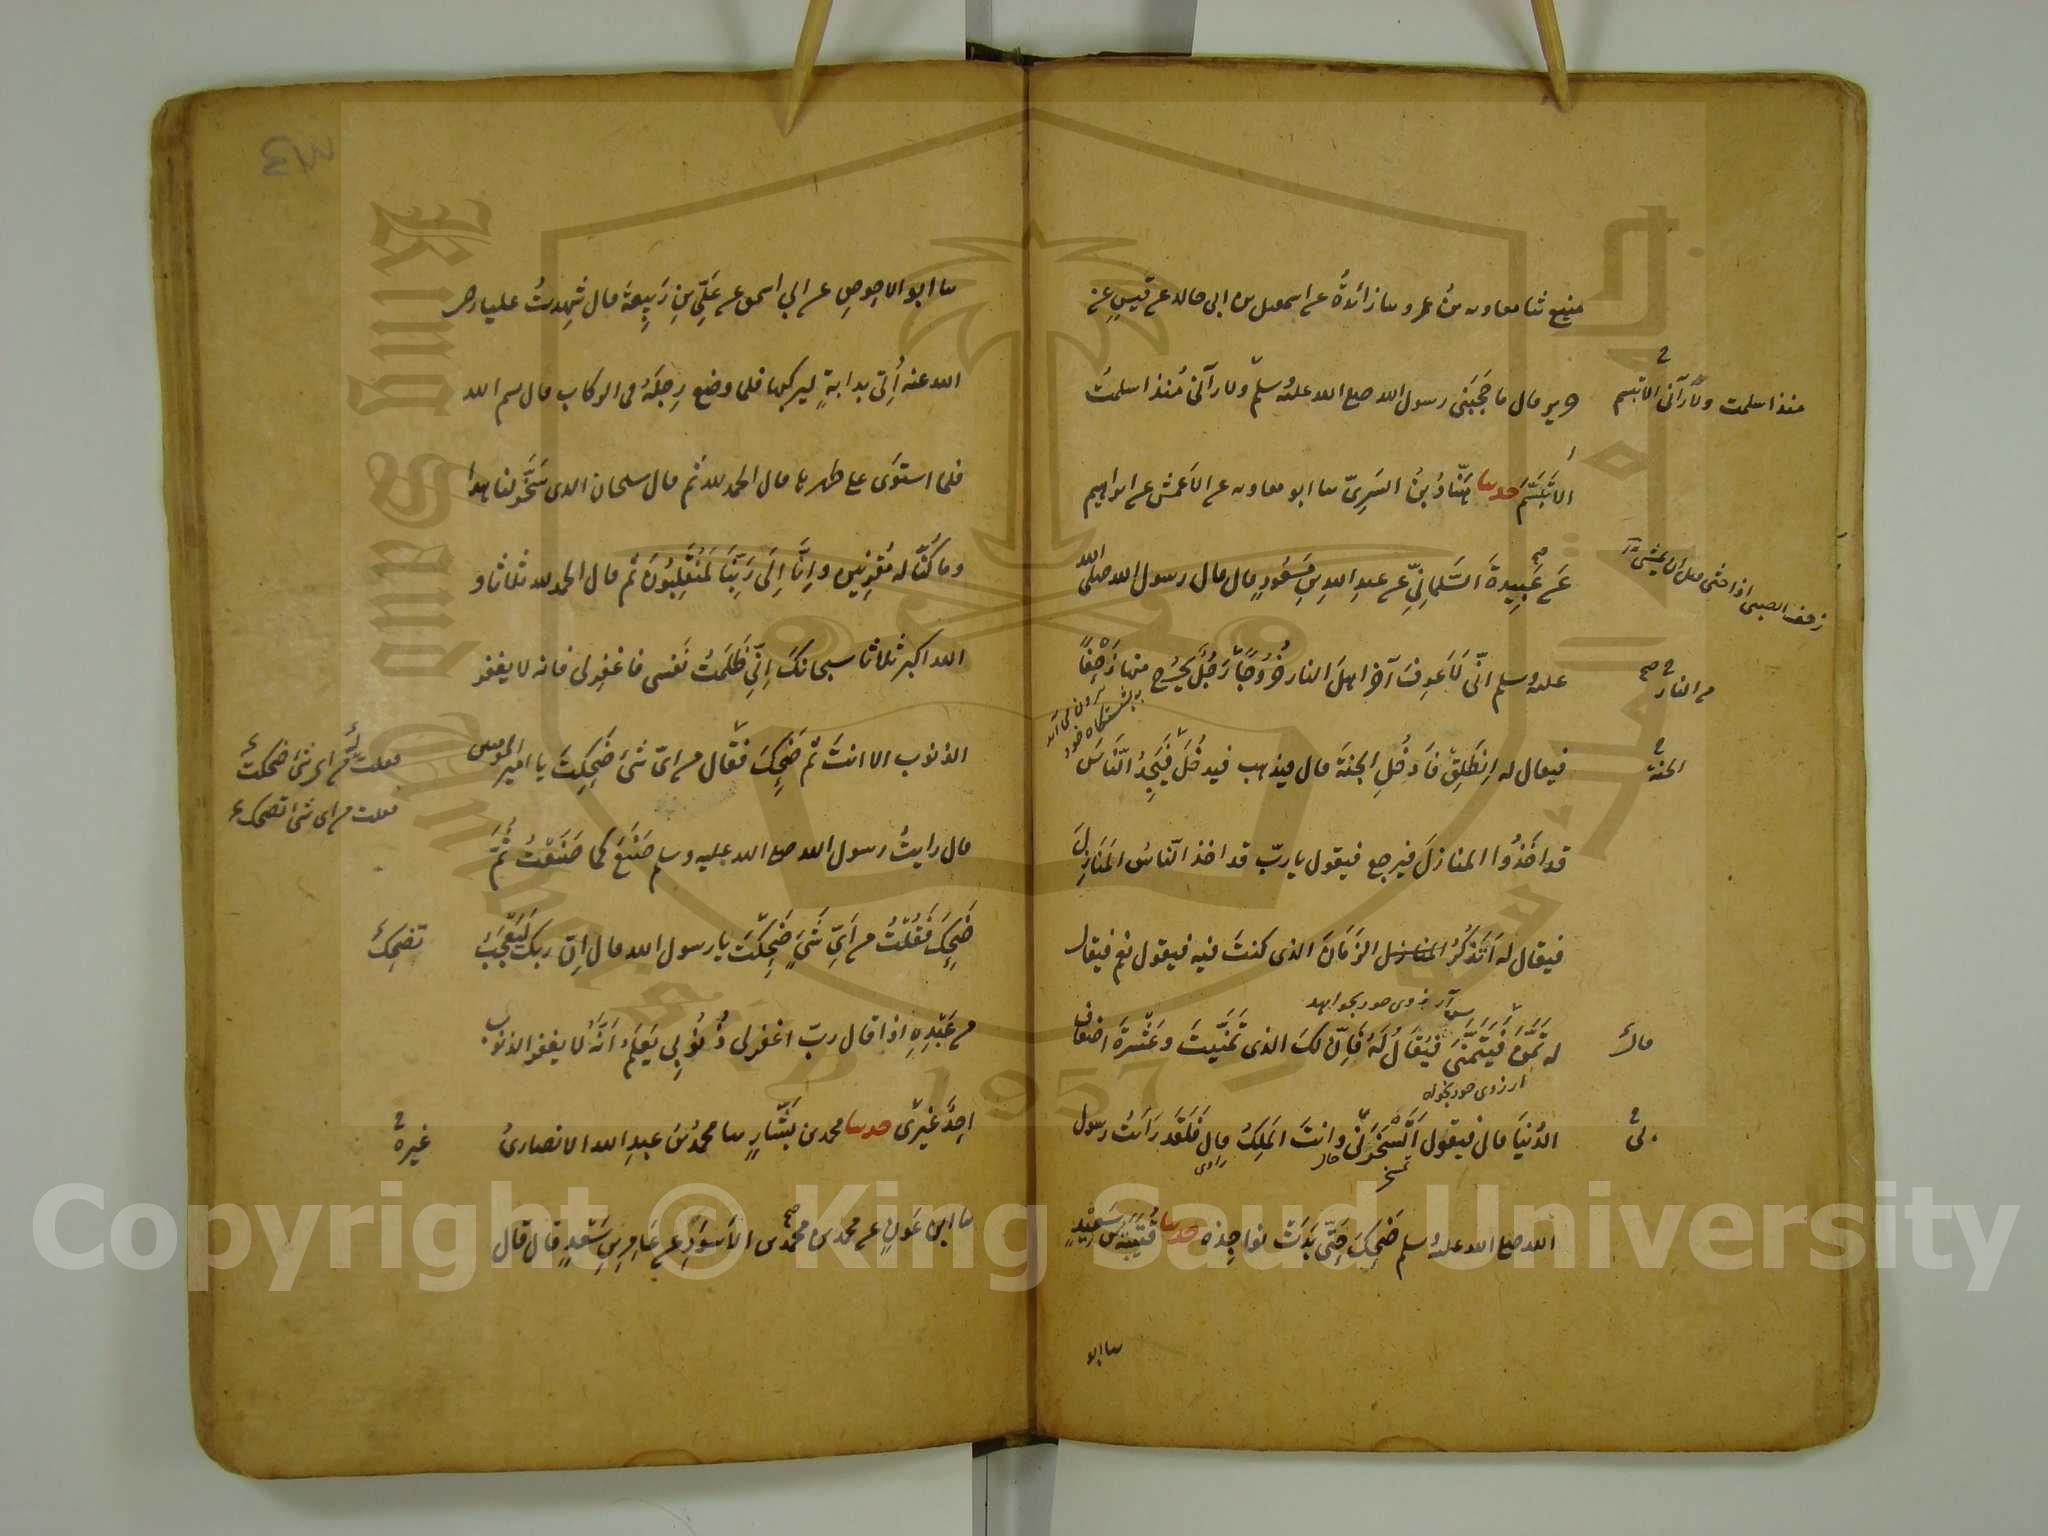 منيع ثنا معاويه بن عمرو ثنا زائدةُ عن اسمعيل بن ابى خالد عن قيسٍ عن
جرير قال ما حَجَبَنى رسول الله صلى الله عليه وسلّم ولا رآنى مُنذ اسلمتُ
منذ اسلمت ولا رآنى الا تبسم
الا تَبَسَّمَ حدثنا هنّادُ بنُ السَرِىّ ثنا ابو معاويه عن الاَعمَش عن ابراهيم
عَن عَبِيدةَ السَّلمانِىِّ عن عبدِ اللهِ بنِ مَسعُودٍ قال قال رسول الله صلى الله
عليه وسلم انّى لَاَعرِفُ آخرَ اهلِ النار خُرُوجًا رَجُلٌ يَخرُج منها زَحْفًا
من النار
فيقال له اِنطَلِق فَادخُلِ الجنةَ قال فيذهب فيدخُلَ فَيَجِدُ النَّاسَ
الجنة
قد اخَذُوا المنازلَ فيرجع فيقول يا ربّ قد اخذ النّاسُ المَنَازِلَ
فيقال له اَتَذكُرُ الزَمَانَ الذى كنتَ فيه فيقول نعم فيقال
له تَمَنَّ فَيَتَمَنَّى فيُقَالُ لَهُ فَاِنَّ لكَ الذى تَمَنَّيتَ وعَشْرةَ اضعاف
قال
الدُنيَا قال فيقول اَتَسْخَرُ بى وانتَ المَلِكُ قال فَلَقَد رَاَيتُ رسول
بى
الله صلى الله عليه وسلم ضَحِكَ حَتّى بَدَت نواجِذه حدثنا قُتَيبَةُ بن سَعِيْدٍ
ثنا ابو
ثنا ابو الاحوصِ عن ابى اسحق عن عَلِىِّ بنِ رَبِيعةَ قال شَهِدتُ عليا رضى
الله عنه اُتِىَ بدابةٍ ليركبها فلما وضع رِجلَهُ فى الركاب قال بسم الله
فلما استوَى على ظهرها قال الحمد لله ثم قال سبحان الذى سَخَّرَ لنا هذا
وما كُنَّا له مُقرِنِين وانَّا اِلَى رَبِّنَا لَمُنقَلِبُونَ ثم قال الحمد لله ثلاثا و
الله اكبر ثلاثا سبحانكَ اِنِّى ظَلَمتُ نَفسى فاغفِرلى فانه لا يغفر
الذنوب الا انتَ ثم ضَحِكَ فقال من اىّ شَىءٍ ضَحِكتَ يا امير المومنين
فقلت من اى شئ ضحكت
فقلت من اى شئ تضحك
قال رايتُ رسول الله صلى الله عليه وسلم صَنَعَ كما صَنَعْتُ ثُمَّ
ضَحِكَ فَقُلْتُ من اَىِّ شَىءٍ ضَحِكتَ يا رسول الله قال اِنّ ربك لَيَعْجَبُ
تضحك
من عَبْدِهِ اذا قال ربّ اغفرلى ذُنُوبِى يَعلَمُ اَنَّهُ لا يغفر الذنوب
احَدٌ غيرى حدثنا محمد بن بَشَّارٍ ثنا محمدُ بنُ عبدِ الله الانصارىُّ
غيره
ثنا ابن عَونٍ عن محمد بن محمد بن الاَسوَدِ عن عَامِرِ بنِ سَعْدٍ قال قال